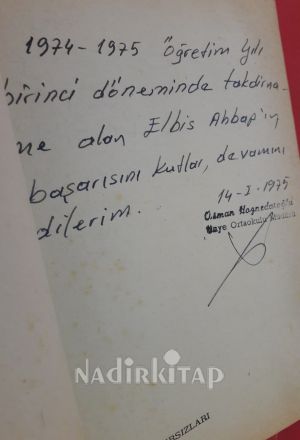 1974-1975 Öğretim Yılı
birinci döneminde takdirna-
me alan Elbis Ahbap'ın
başarısını kutlar, devamını
dilerim.
14-I-1975
Osman
Ortaokulu Müdürü
NADİRKİTAP
RSIZLARI